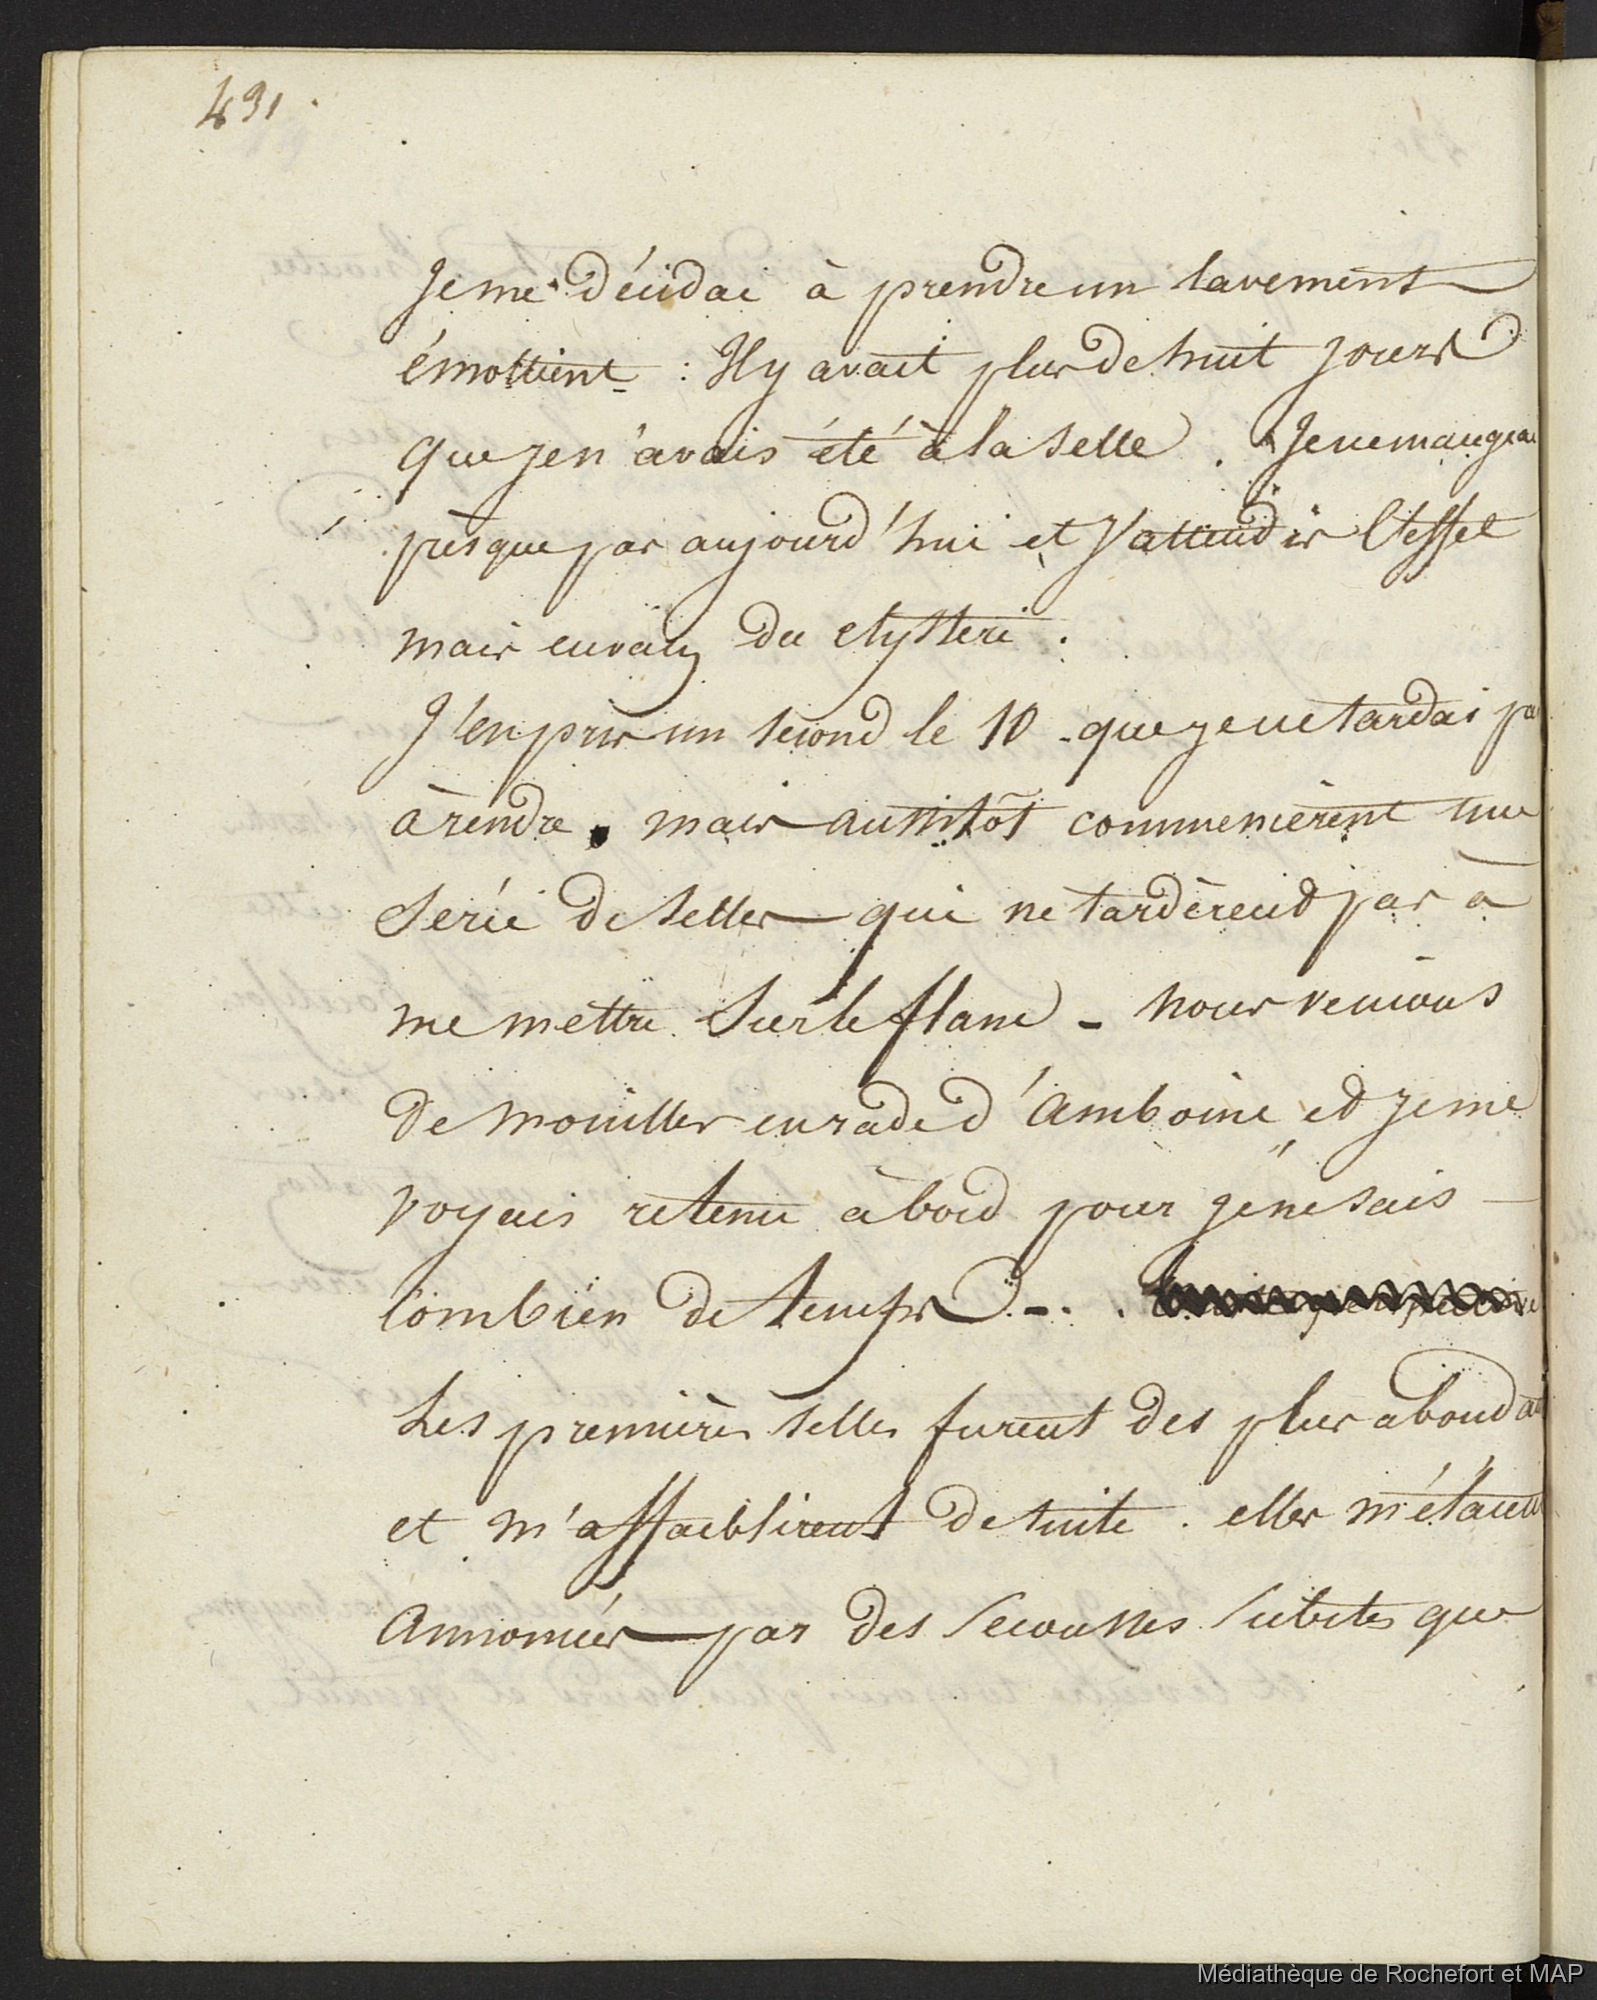 491.
Je me décidai à prendre un lavement
émollient : Il y avait plus de huit jours
que je n'avais été à la selle . Je ne mangeai
presque pas aujourd'hui et j'attendis l'effet
mais en vain du clystere .
J'en pris un second le 10 - que je ne tardai pas
à rendre . mais aussitôt commencèrent une
série de selles qui ne tardèrent pas à
me mettre sur le flanc - nous venions
de mouiller en rade d'Amboine, et je me
voyais retenu à bord pour je ne sais
combien de temps - .
Les premières selles furent des plus abondan
et m'affaiblirent de suite . elles m'étaient
annoncées par des secousses subites que
Médiathèque de Rochefort et MAP